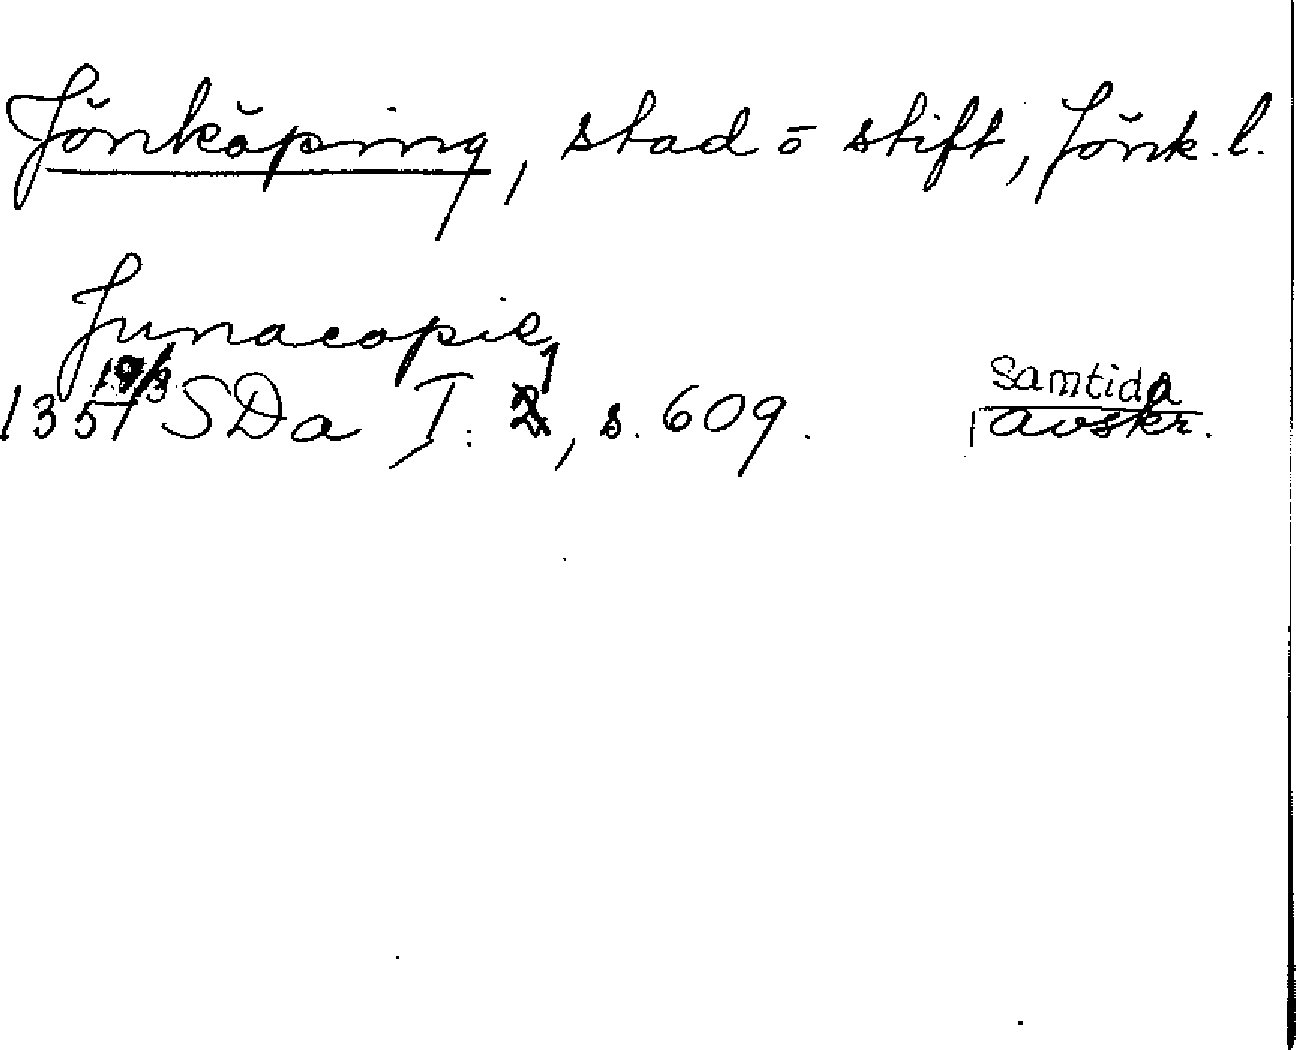 Jönköping, stad o stift, Jönk. l.
Junacopie,
1357 19/3 SDa I: 1, s. 609.
Samtida
avskr.